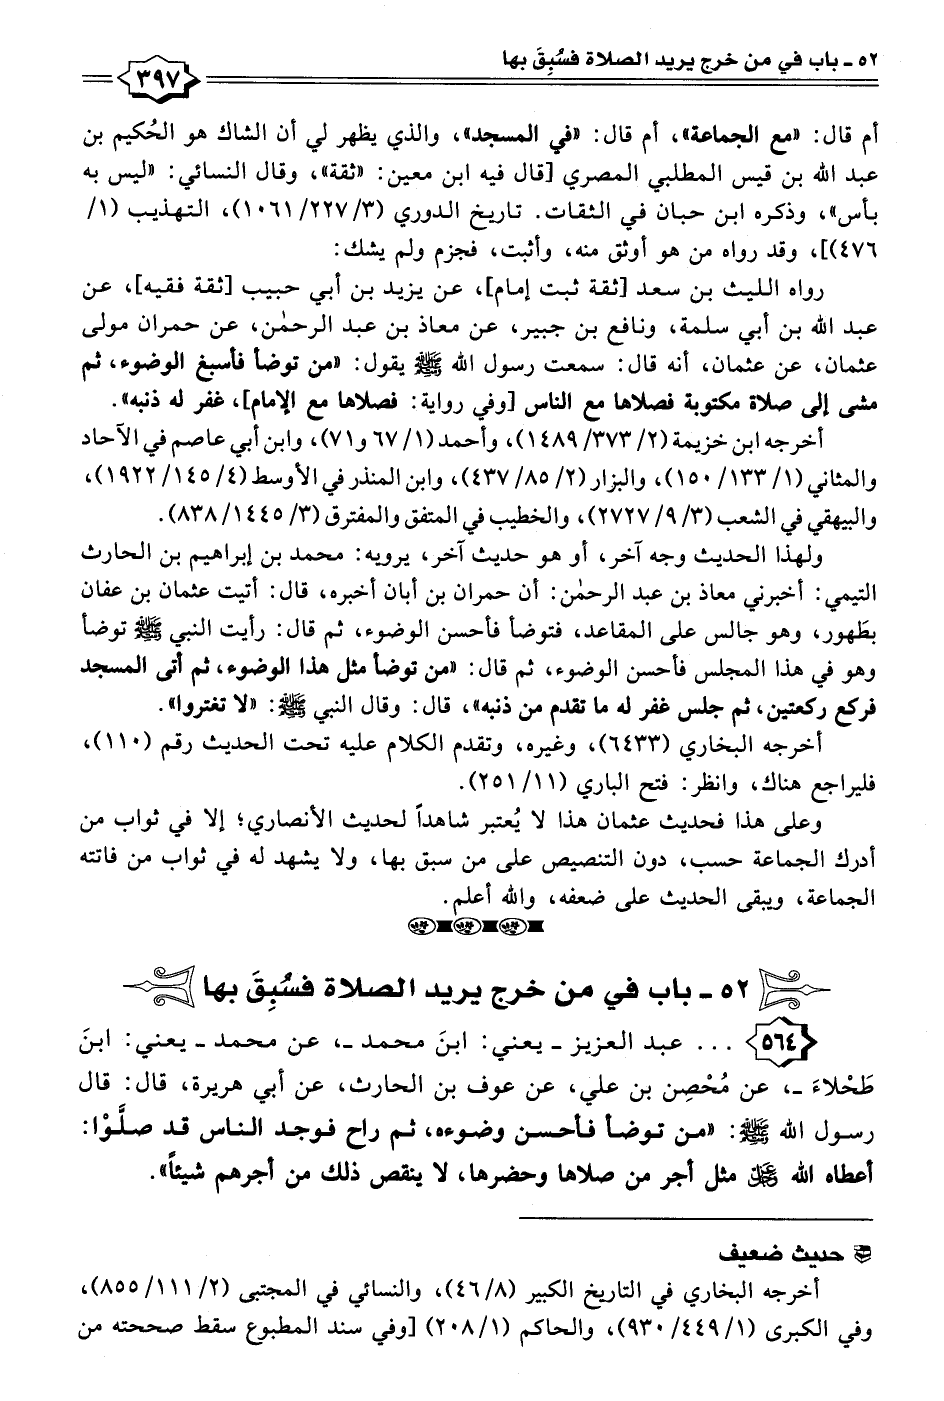 ٥٢ - باب في من خرج يريد الصلاة فسُبِقَ بها
٣٩٧
أم قال: «مع الجماعة»، أم قال: «في المسجد»، والذي يظهر لي أن الشاك هو الحُكيم بن
عبد الله بن قيس المطلبي المصري [قال فيه ابن معين: «ثقة»، وقال النسائي: «ليس به
بأس»، وذكره ابن حبان في الثقات. تاريخ الدوري (٣/ ٢٢٧/ ١٠٦١)، التهذيب (١/
٤٧٦)]، وقد رواه من هو أوثق منه، وأثبت، فجزم ولم يشك:
رواه الليث بن سعد [ثقة ثبت إمام]، عن يزيد بن أبي حبيب [ثقة فقيه]، عن
عبد الله بن أبي سلمة، ونافع بن جبير، عن معاذ بن عبد الرحمٰن، عن حمران مولى
عثمان، عن عثمان، أنه قال: سمعت رسول الله ﷺ يقول: «من توضأ فأسبغ الوضوء، ثم
مشى إلى صلاة مكتوبة فصلاها مع الناس [وفي رواية: فصلاها مع الإمام]، غفر له ذنبه».
أخرجه ابن خزيمة (٢/ ٣٧٣/ ١٤٨٩)، وأحمد (١/ ٦٧ و٧١)، وابن أبي عاصم في الآحاد
والمثاني (١/ ١٣٣/ ١٥٠)، والبزار (٢/ ٨٥/ ٤٣٧)، وابن المنذر في الأوسط (٤/ ١٤٥/ ١٩٢٢)،
والبيهقي في الشعب (٣/ ٩/ ٢٧٢٧)، والخطيب في المتفق والمفترق (٣/ ١٤٤٥/ ٨٣٨).
ولهذا الحديث وجه آخر، أو هو حديث آخر، يرويه: محمد بن إبراهيم بن الحارث
التيمي: أخبرني معاذ بن عبد الرحمٰن: أن حمران بن أبان أخبره، قال: أتيت عثمان بن عفان
بطَهور، وهو جالس على المقاعد، فتوضأ فأحسن الوضوء، ثم قال: رأيت النبي ﷺ توضأ
وهو في هذا المجلس فأحسن الوضوء، ثم قال: «من توضأ مثل هذا الوضوء، ثم أتى المسجد
فركع ركعتين، ثم جلس غفر له ما تقدم من ذنبه»، قال: وقال النبي ﷺ: «لا تغتروا».
أخرجه البخاري (٦٤٣٣)، وغيره، وتقدم الكلام عليه تحت الحديث رقم (١١٠)،
فليراجع هناك، وانظر: فتح الباري (١١/ ٢٥١).
وعلى هذا فحديث عثمان هذا لا يُعتبر شاهداً لحديث الأنصاري؛ إلا في ثواب من
أدرك الجماعة حسب، دون التنصيص على من سبق بها، ولا يشهد له في ثواب من فاتته
الجماعة، ويبقى الحديث على ضعفه، والله أعلم.
٥٢ - باب في من خرج يريد الصلاة فسُبِقَ بها
٥٦٤ ... عبد العزيز - يعني: ابنَ محمد -، عن محمد - يعني: ابنَ
طَحْلاءَ -، عن مُحْصِن بن علي، عن عوف بن الحارث، عن أبي هريرة، قال: قال
رسول الله ﷺ: «من توضأ فأحسن وضوءه، ثم راح فوجد الناس قد صلَّوْا:
أعطاه الله ﷿ مثل أجر من صلاها وحضرها، لا ينقص ذلك من أجرهم شيئاً».
حديث ضعيف
أخرجه البخاري في التاريخ الكبير (٨/ ٤٦)، والنسائي في المجتبى (٢/ ١١١/ ٨٥٥)،
وفي الكبرى (١/ ٤٤٩/ ٩٣٠)، والحاكم (١/ ٢٠٨) [وفي سند المطبوع سقط صححته من